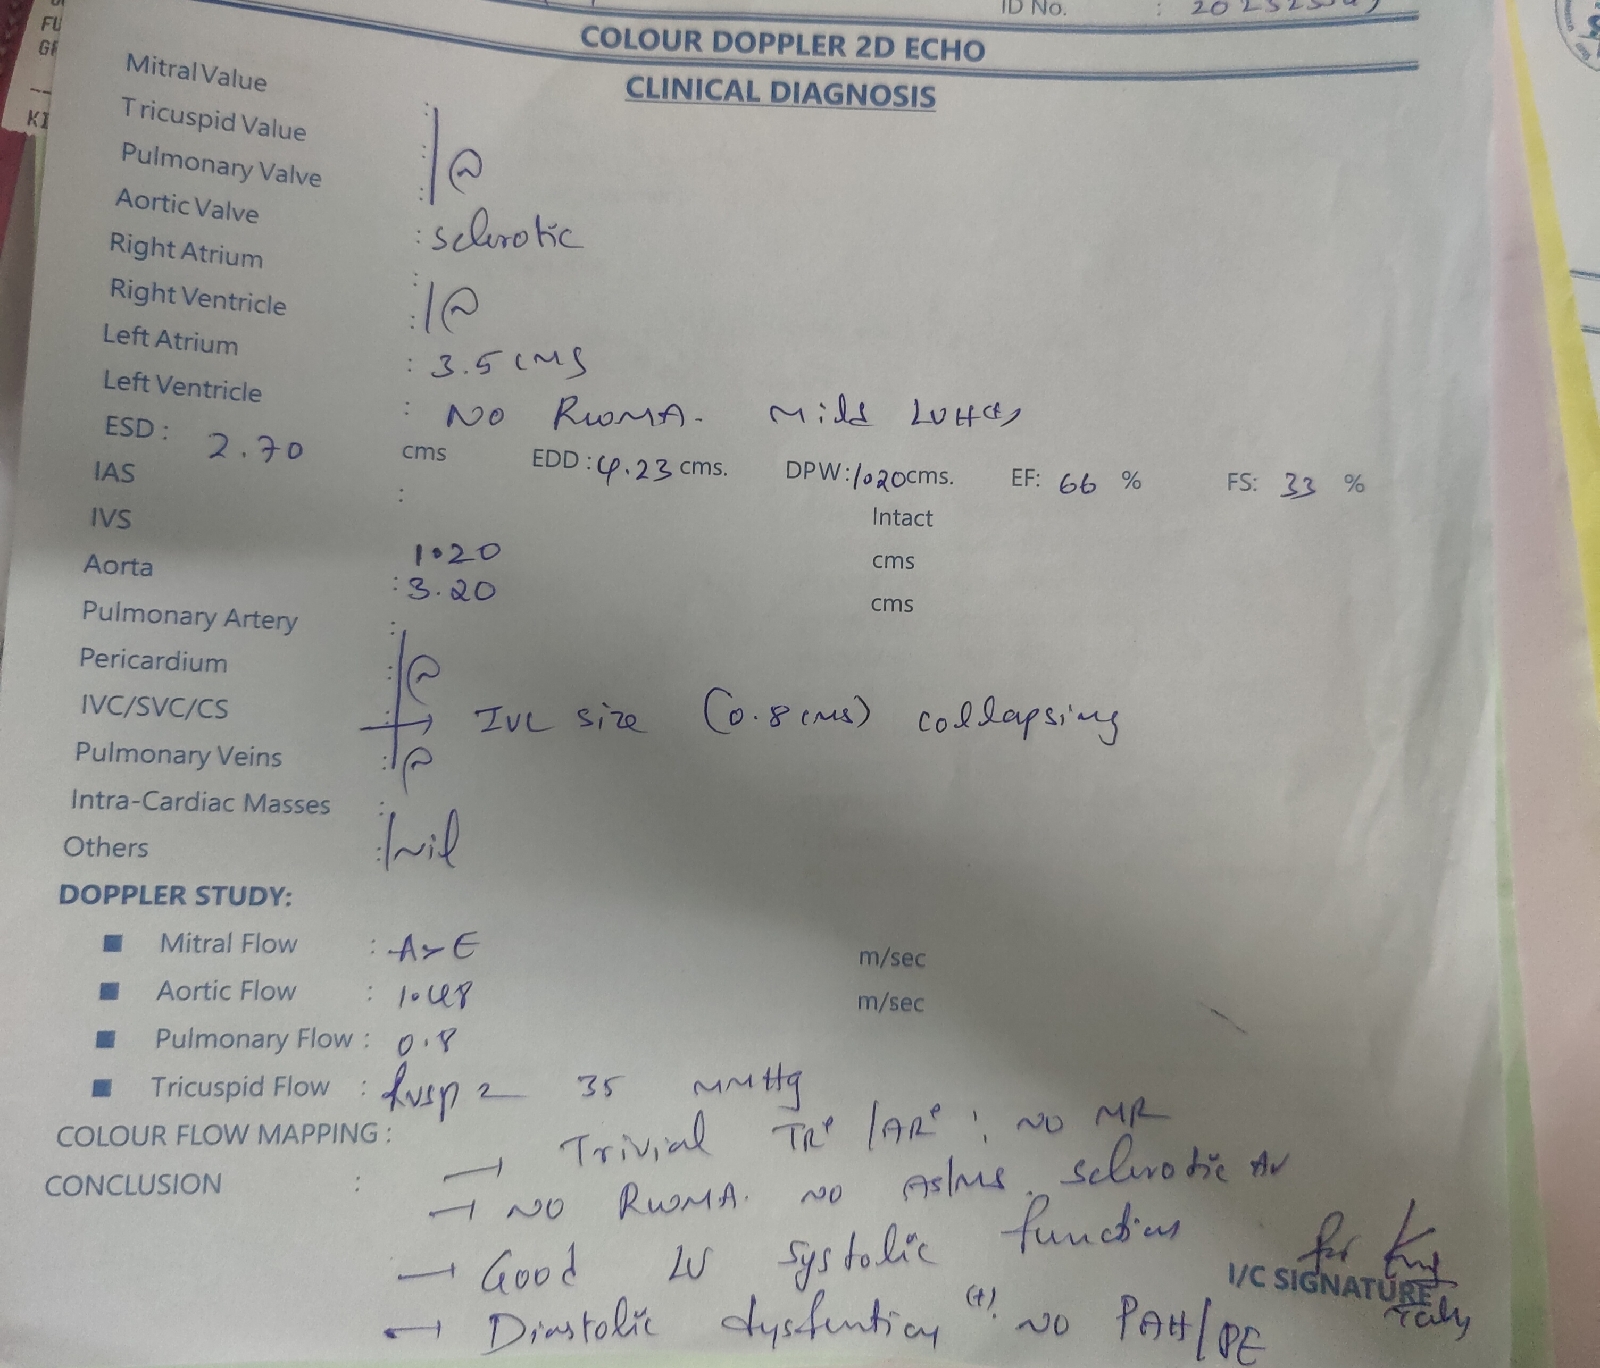 FU
GF
KI
ID No. :
COLOUR DOPPLER 2D ECHO
CLINICAL DIAGNOSIS
Mitral Value :
Tricuspid Value :
Pulmonary Valve :
Aortic Valve : sclerotic
Right Atrium :
Right Ventricle :
Left Atrium : 3.5 cms
Left Ventricle : NO RWMA. Mild LVH(+)
ESD : 2.70 cms EDD : 4.23 cms. DPW : 1.20 cms. EF: 66 % FS: 33 %
IAS : Intact
IVS 1.20 cms
Aorta : 3.20 cms
Pulmonary Artery :
Pericardium :
IVC/SVC/CS : → IVC size (0.8 cms) collapsing
Pulmonary Veins :
Intra-Cardiac Masses :
Others : Nil
DOPPLER STUDY:
■ Mitral Flow : A>E m/sec
■ Aortic Flow : 1.48 m/sec
■ Pulmonary Flow : 0.8
■ Tricuspid Flow : RVSP = 35 mmHg
COLOUR FLOW MAPPING : Trivial TR+ /AR+ ; NO MR
CONCLUSION : NO RWMA. NO AS/MS. sclerotic AV
Good LV systolic function
Diastolic dysfuntion (+). NO PAH/PE
for
I/C SIGNATURE